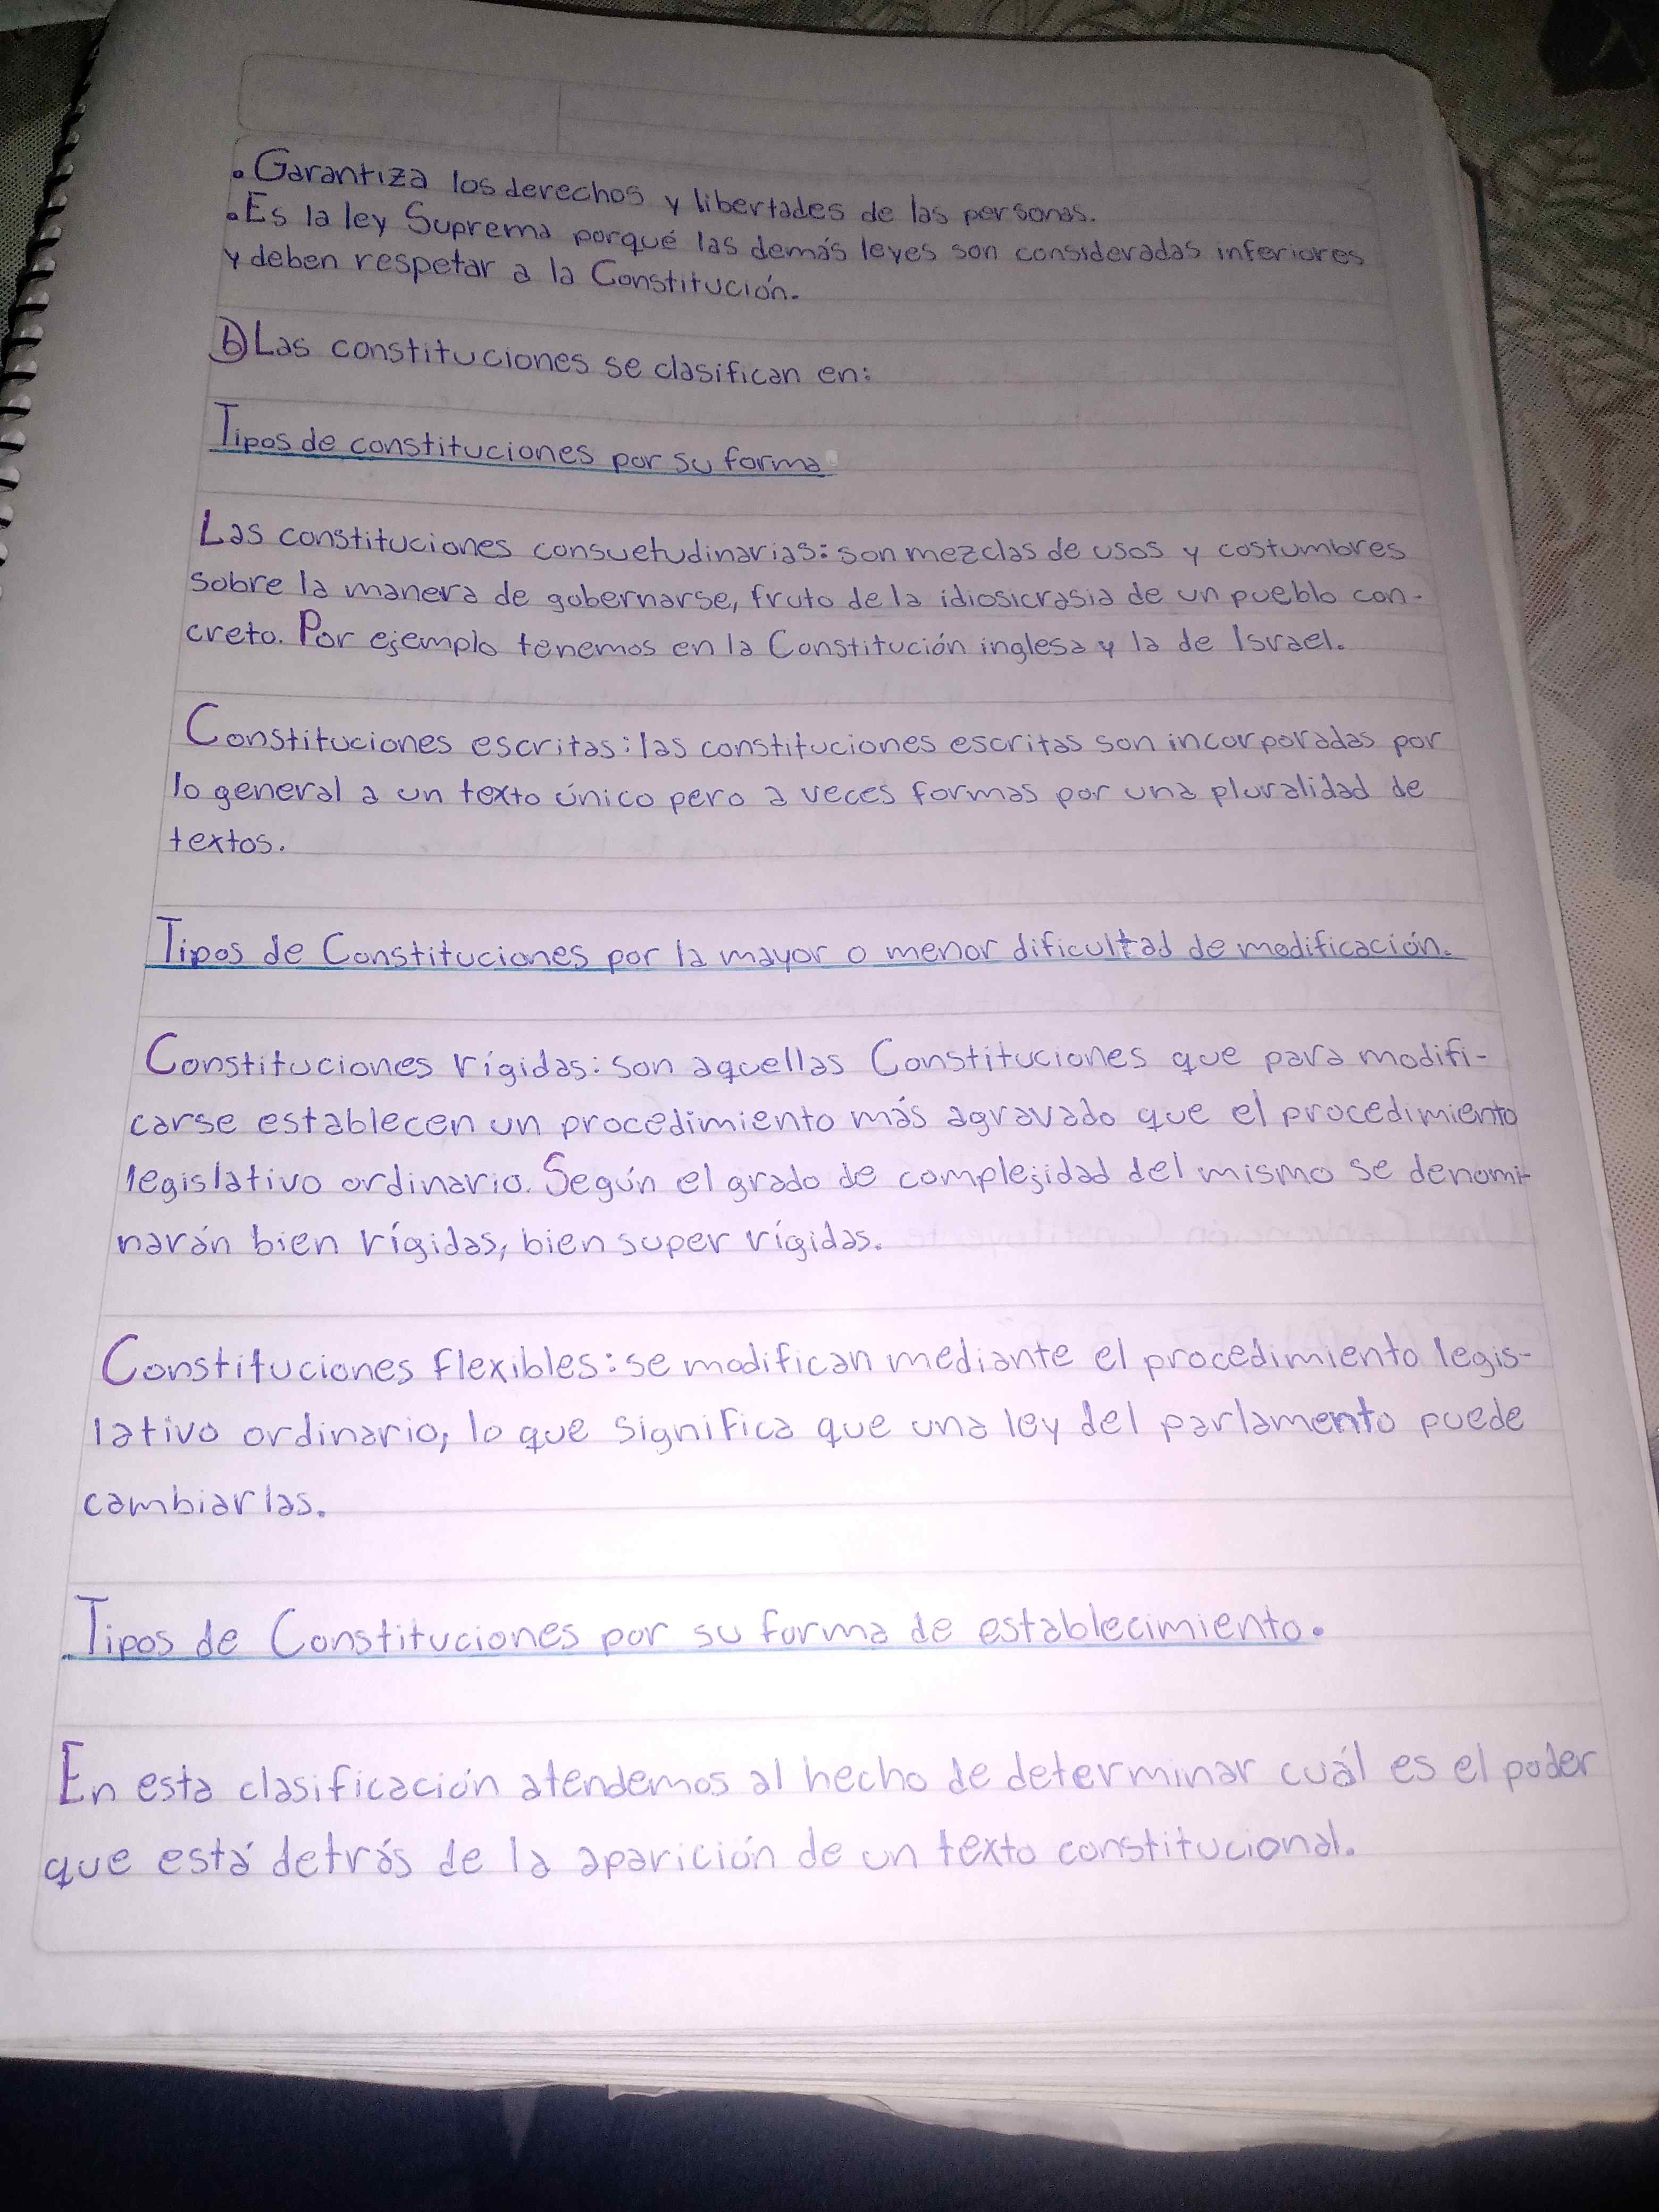 • Garantiza los derechos y libertades de las personas.
• Es la ley Suprema porqué las demás leyes son consideradas inferiores
y deben respetar a la Constitución.
b) Las constituciones se clasifican en:
Tipos de constituciones por su forma
Las constituciones consuetudinarias: son mezclas de usos y costumbres
sobre la manera de gobernarse, fruto de la idiosicrasia de un pueblo con-
creto. Por ejemplo tenemos en la Constitución inglesa y la de Israel.
Constituciones escritas: las constituciones escritas son incorporadas por
lo general a un texto único pero a veces formas por una pluralidad de
textos.
Tipos de Constituciones por la mayor o menor dificultad de modificación.
Constituciones rígidas: son aquellas Constituciones que para modifi-
carse establecen un procedimiento más agravado que el procedimiento
legislativo ordinario. Según el grado de complejidad del mismo se denomi-
narán bien rígidas, bien super rígidas.
Constituciones flexibles: se modifican mediante el procedimiento legis-
lativo ordinario, lo que significa que una ley del parlamento puede
cambiarlas.
Tipos de Constituciones por su forma de establecimiento.
En esta clasificación atendemos al hecho de determinar cuál es el poder
que está detrás de la aparición de un texto constitucional.